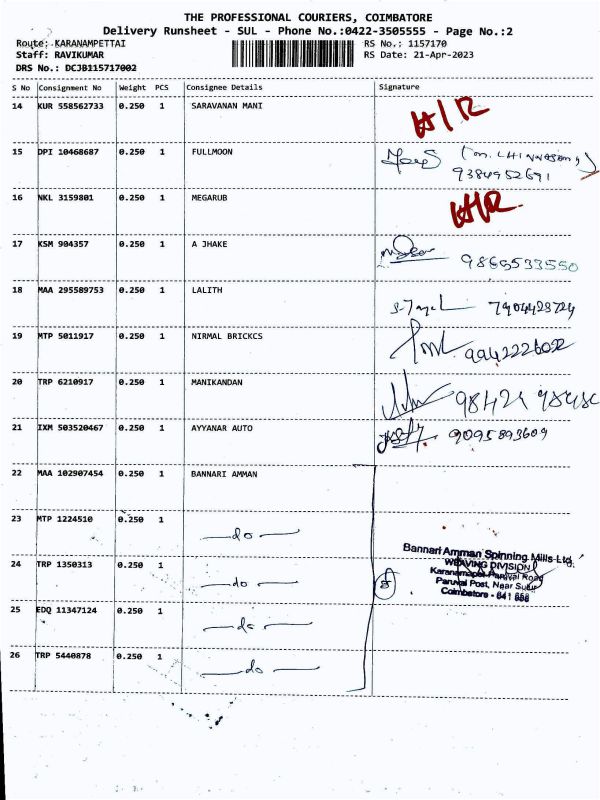 THE PROFESSIONAL COURIERS, COIMBATORE
Delivery Runsheet - SUL - Phone No.:0422-3505555 - Page No.:2
Route: KARANAMPETTAI RS No.: 1157170
Staff: RAVIKUMAR RS Date: 21-Apr-2023
DRS No.: DCJB115717002
S No Consignment No Weight PCS Consignee Details Signature
14 KUR 558562733 0.250 1 SARAVANAN MANI H/R
15 DPI 10468687 0.250 1 FULLMOON
9384952691
16 NKL 3159801 0.250 1 MEGARUB H/R
17 KSM 904357 0.250 1 A JHAKE
9865533550
18 MAA 295589753 0.250 1 LALITH 7904423724
19 MTP 5011917 0.250 1 NIRMAL BRICKCS 9942226092
20 TRP 6210917 0.250 1 MANIKANDAN
21 IXM 503520467 0.250 1 AYYANAR AUTO 9095893609
22 MAA 102907454 0.250 1 BANNARI AMMAN
23 MTP 1224510 0.250 1 — do —
24 TRP 1350313 0.250 1 — do —
25 EDQ 11347124 0.250 1 — do —
26 TRP 5440878 0.250 1 — do —
Bannari Amman Spinning Mills Ltd.
WEAVING DIVISION
Karanampet Paruvai Road
Paruvai Post, Near Sulur
Coimbatore - 641 658
5